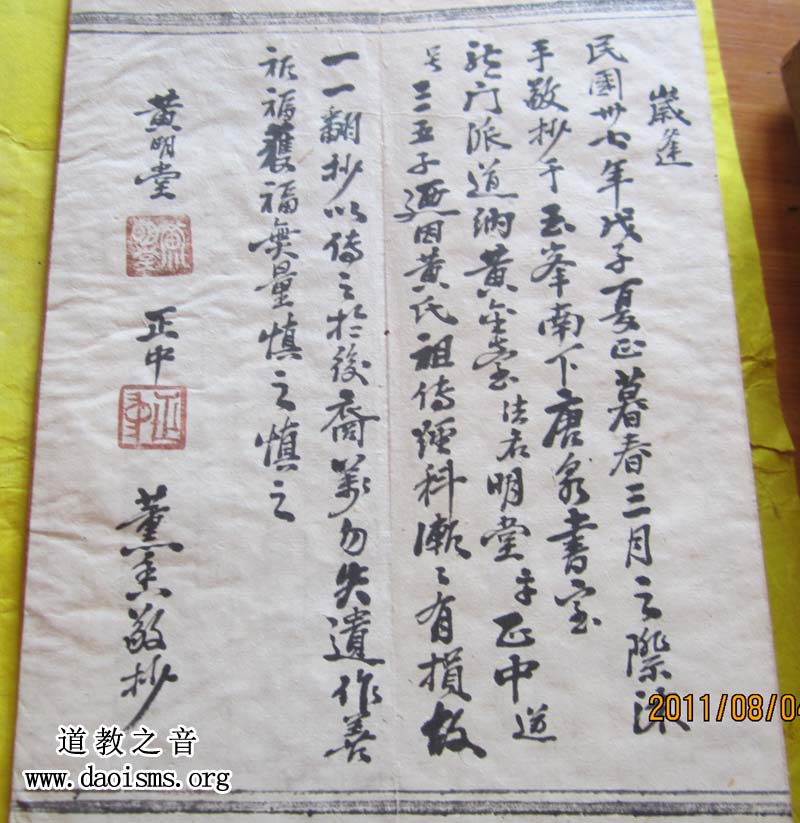 歲逢
民國卅七年戊子夏正暮春三月之際沐
手敬抄于玉峯南下唐泉書室
龍门派道衲黃金堂法名明堂字正中道
号三五子迺因黃氏祖傳經科漸〻有損故
一一翻抄以傳之於後裔萬勿失遺作善
祈福獲福無量慎之慎之
黃明堂
正中
薰香敬抄
正中
2011/08/04
道教之音
www.daoisms.org